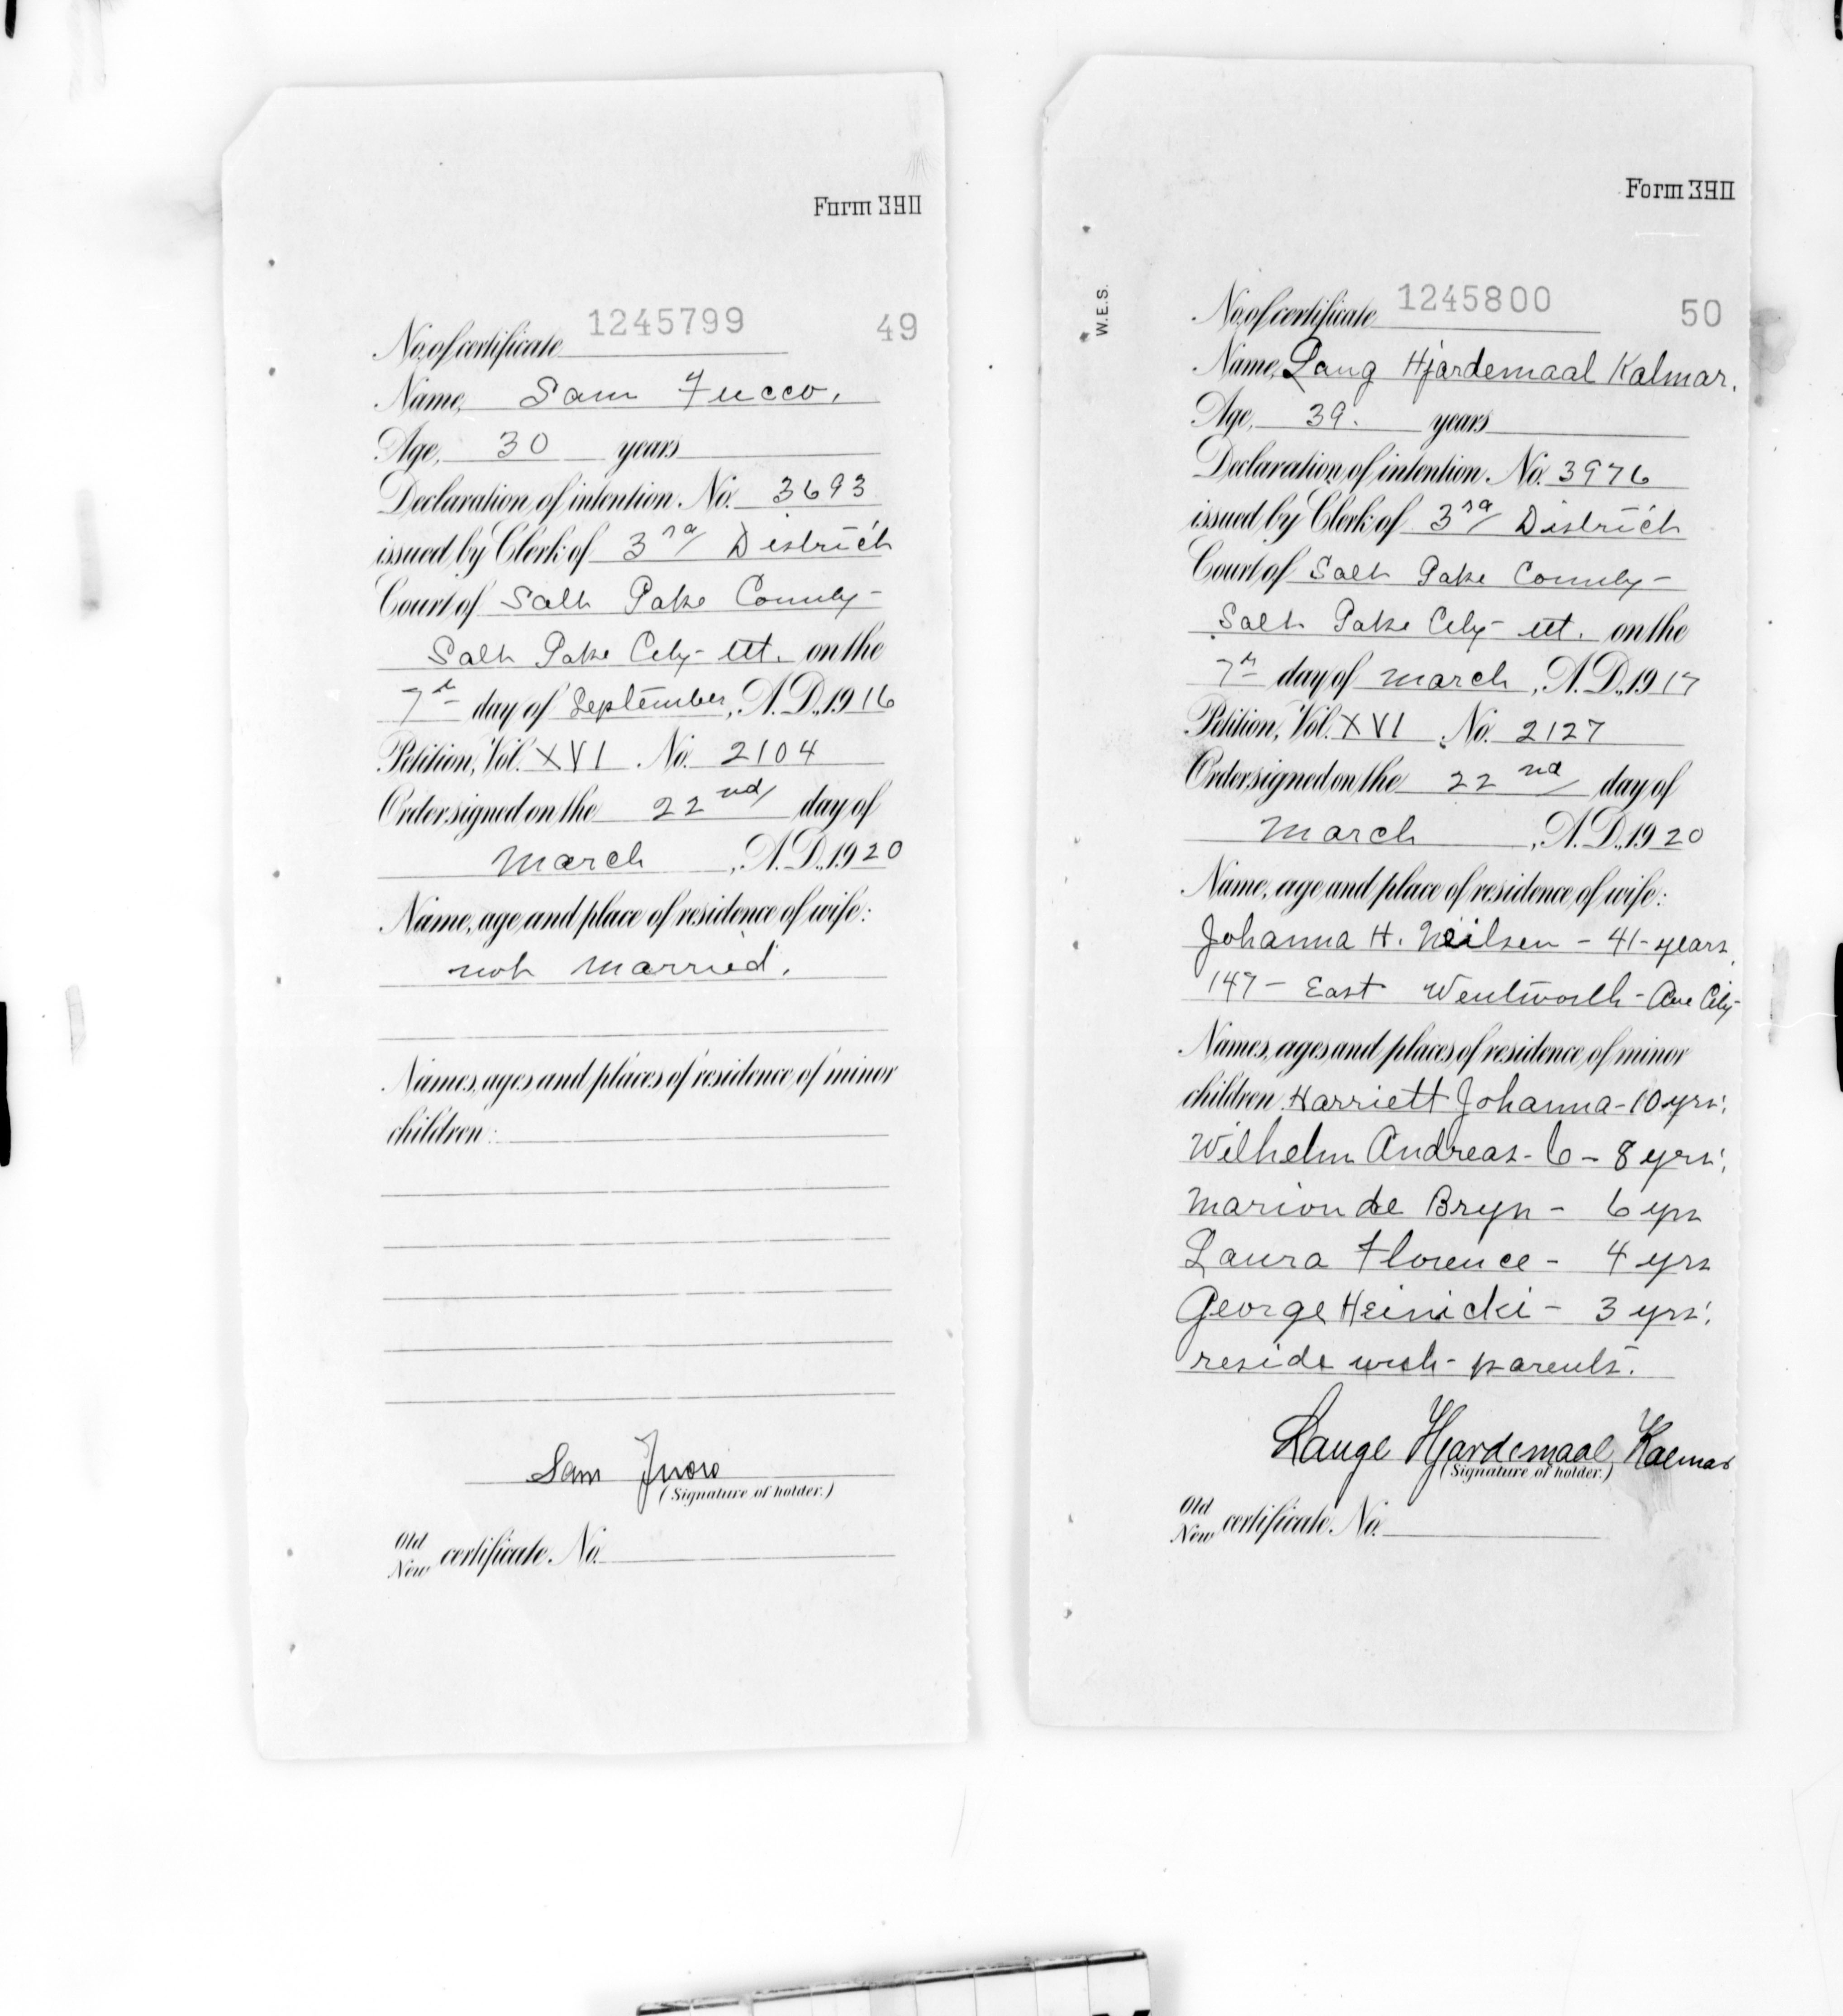 Form 390
No. of certificate 1245799 49
Name, Sam Fucco.
Age, 30 years
Declaration of intention No. 3693
issued by Clerk of 3rd District
Court of Salt Lake County-
Salt Lake City- Ut. on the
7th day of September, A.D., 1916
Petition, Vol. XVI No. 2104
Order signed on the 22nd day of
March, A.D., 1920
Name, age and place of residence of wife:
not married.
Names, ages and places of residence of minor
children:
Sam
(Signature of holder.)
Old
New certificate No.
Form 390
W.E.S.
No. of certificate 1245800 50
Name, Laug Hjardemaal Kalmar.
Age, 39. years
Declaration of intention No. 3976
issued by Clerk of 3rd District
Court of Salt Lake County-
Salt Lake City- Ut. on the
7th day of March, A.D., 1917
Petition, Vol. XVI No. 2127
Order signed on the 22nd day of
March, A.D., 1920
Name, age and place of residence of wife:
Johanna H. Neilsen - 41- years,
147- East Wentworth- Ave City-
Names, ages and places of residence of minor
children Harriett Johanna- 10 yrs.
Wilhelm Andreas- 6 - 8 yrs.
Marion de Bryn - 6 yrs
Laura Florence - 4 yrs
George Heinicki - 3 yrs.
reside with- parents.
Lauge Hjardemaal Kalmar
(Signature of holder.)
Old
New certificate No.